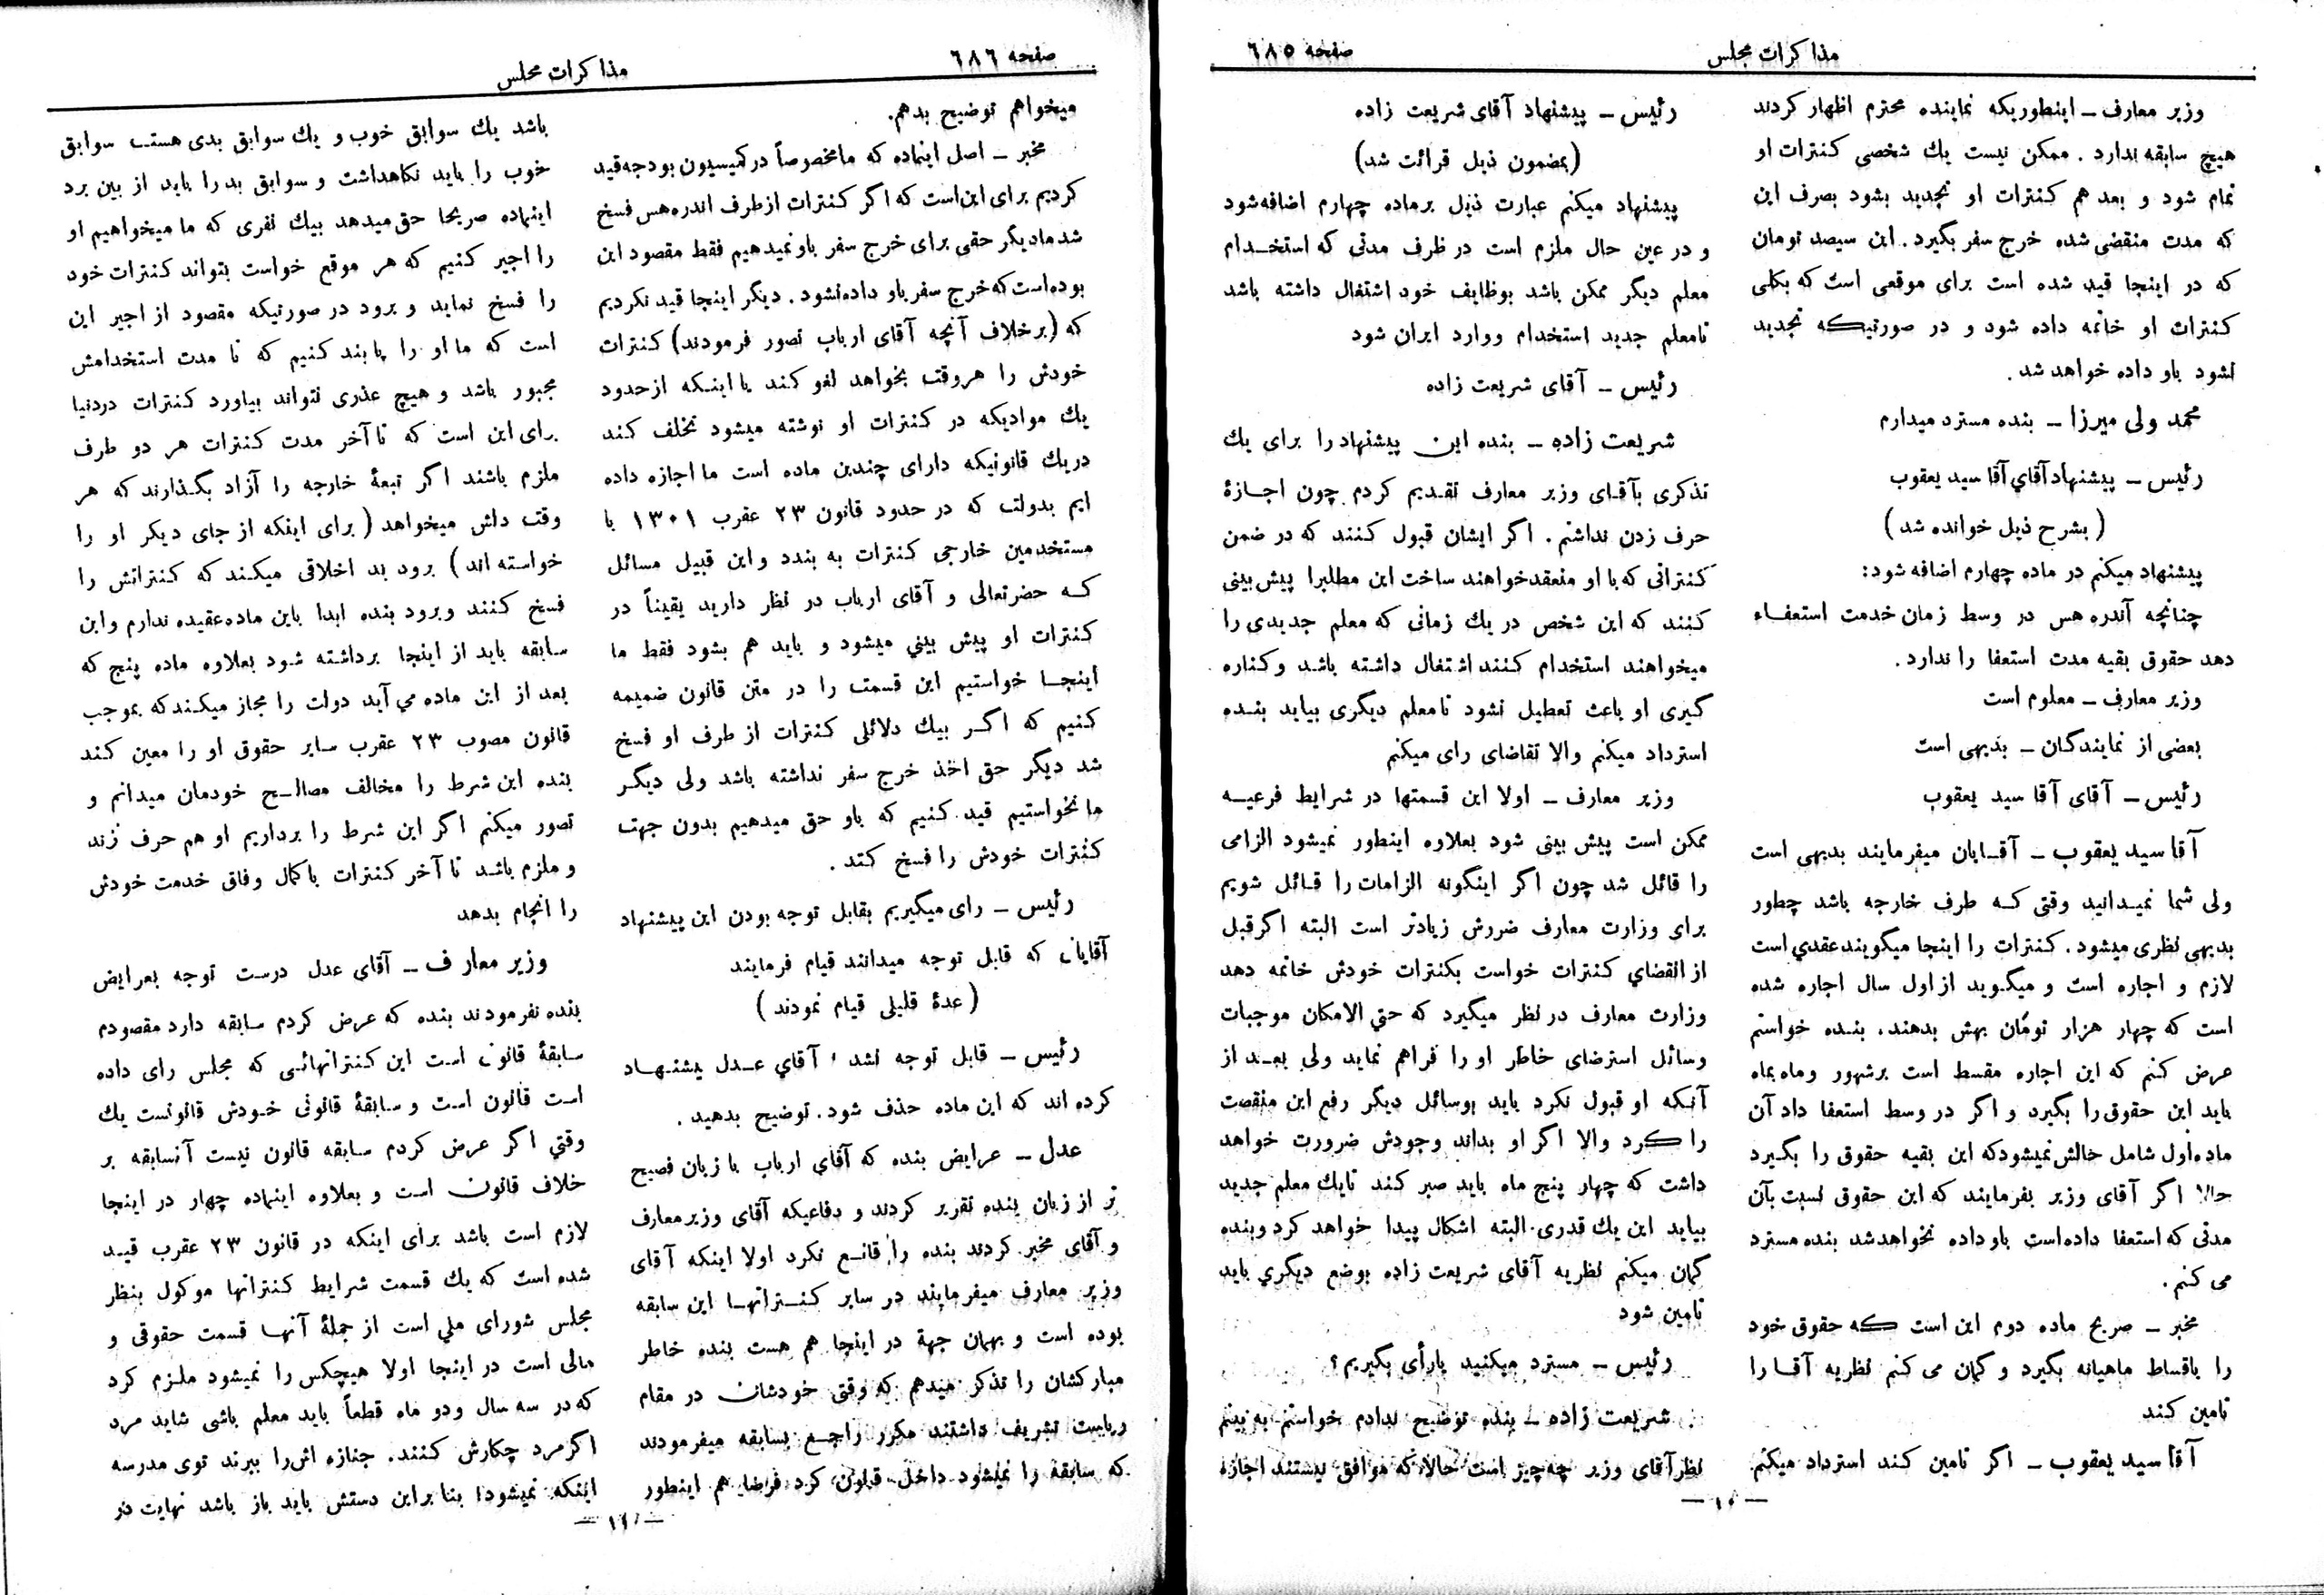 مذاکرات مجلس
صفحه ٦٨٥
وزیر معارف ـ اینطوریکه نماینده محترم اظهار کردند
هیچ سابقه ندارد . ممکن نیست یك شخصی کنترات او
تمام شود و بعد هم کنترات او تجدید بشود بصرف این
که مدت منقضی شده خرج سفر بگیرد . این سیصد تومان
که در اینجا قید شده است برای موقعی است که بکلی
کنترات او خاتمه داده شود و در صورتیکه تجدید
نشود باو داده خواهد شد .
محمد ولی میرزا ـ بنده مسترد میدارم
رئیس ـ پیشنهاد آقای آقا سید یعقوب
( بشرح ذیل خوانده شد )
پیشنهاد میکنم در ماده چهارم اضافه شود :
چنانچه آندره هس در وسط زمان خدمت استعفاء
دهد حقوق بقیه مدت استعفا را ندارد .
وزیر معارف ـ معلوم است
بعضی از نمایندگان ـ بدیهی است
رئیس ـ آقای آقا سید یعقوب
آقا سید یعقوب ـ آقایان میفرمایند بدیهی است
ولی شما نمیدانید وقتی که طرف خارجه باشد چطور
بدیهی نظری میشود . کنترات را اینجا میگویند عقدی است
لازم و اجاره است و میگوید از اول سال اجاره شده
است که چهار هزار تومان بهش بدهند . بنده خواستم
عرض کنم که این اجاره مقسط است برشهور و ماه بماه
باید این حقوق را بگیرد و اگر در وسط استعفا داد آن
ماده اول شامل حالش نمیشود که این بقیه حقوق را بگیرد
حالا اگر آقای وزیر بفرمایند که این حقوق نسبت بآن
مدتی که استعفا داده است باو داده نخواهد شد بنده مسترد
می کنم .
مخبر ـ صریح ماده دوم این است که حقوق خود
را باقساط ماهیانه بگیرد و گمان می کنم نظریه آقا را
تامین کند
آقا سید یعقوب ـ اگر تامین کند استرداد میکنم
رئیس ـ پیشنهاد آقای شریعت زاده
(بمضمون ذیل قرائت شد)
پیشنهاد میکنم عبارت ذیل برماده چهارم اضافه شود
و در عین حال ملزم است در ظرف مدتی که استخدام
معلم دیگر ممکن باشد بوظایف خود اشتغال داشته باشد
تا معلم جدید استخدام ووارد ایران شود
رئیس ـ آقای شریعت زاده
شریعت زاده ـ بنده این پیشنهاد را برای یك
تذکری بآقای وزیر معارف تقدیم کردم چون اجازۀ
حرف زدن نداشتم . اگر ایشان قبول کنند که در ضمن
کنتراتی که با او منعقد خواهند ساخت این مطلبرا پیش بینی
کنند که این شخص در یك زمانی که معلم جدیدی را
میخواهند استخدام کنند اشتغال داشته باشد و کناره
گیری او باعث تعطیل نشود تا معلم دیگری بیاید بنده
استرداد میکنم والا تقاضای رای میکنم
وزیر معارف ـ اولا این قسمتها در شرایط فرعیه
ممکن است پیش بینی شود بعلاوه اینطور نمیشود الزامی
را قائل شد چون اگر اینگونه الزامات را قائل شویم
برای وزارت معارف ضررش زیادتر است البته اگر قبل
از انقضای کنترات خواست بکنترات خودش خاتمه دهد
وزارت معارف در نظر میگیرد که حتی الامکان موجبات
وسائل استرضای خاطر او را فراهم نماید ولی بعد از
آنکه او قبول نکرد باید بوسائل دیگر رفع این منقصت
را کرد والا اگر او بداند وجودش ضرورت خواهد
داشت که چهار پنج ماه باید صبر کند تا یك معلم جدید
بیاید این یك قدری البته اشکال پیدا خواهد کرد و بنده
گمان میکنم نظریه آقای شریعت زاده بوضع دیگری باید
تامین شود
رئیس ـ مسترد میکنید یا رأی بگیریم ؟
شریعت زاده ـ بنده توضیح ندادم خواستم به بینم
نظر آقای وزیر چه چیز است حالا که موافق نیستند اجازه
ـ ۱۰ ـ
صفحه ٦٨٦
مذاکرات مجلس
میخواهم توضیح بدهم .
مخبر ـ اصل اینماده که ما مخصوصاً در کمیسیون بودجه قید
کردیم برای این است که اگر کنترات از طرف اندره هس فسخ
شد ما دیگر حقی برای خرج سفر باو نمیدهیم فقط مقصود این
بوده است که خرج سفر باو داده نشود . دیگر اینجا قید نکردیم
که (برخلاف آنچه آقای ارباب تصور فرمودند) کنترات
خودش را هروقت بخواهد لغو کند یا اینکه از حدود
یك موادیکه در کنترات او نوشته میشود تخلف کند
در یك قانونیکه دارای چندین ماده است ما اجازه داده
ایم بدولت که در حدود قانون ۲۳ عقرب ۱۳۰۱ با
مستخدمین خارجی کنترات به بندد و این قبیل مسائل
که حضرتعالی و آقای ارباب در نظر دارید یقیناً در
کنترات او پیش بینی میشود و باید هم بشود فقط ما
اینجا خواستیم این قسمت را در متن قانون ضمیمه
کنیم که اگر بیك دلائلی کنترات از طرف او فسخ
شد دیگر حق اخذ خرج سفر نداشته باشد ولی دیگر
ما نخواستیم قید کنیم که باو حق میدهیم بدون جهت
کنترات خودش را فسخ کند .
رئیس ـ رای میگیریم بقابل توجه بودن این پیشنهاد
آقایان که قابل توجه میدانند قیام فرمایند
( عدۀ قلیلی قیام نمودند )
رئیس ـ قابل توجه نشد ، آقای عدل پیشنهاد
کرده اند که این ماده حذف شود . توضیح بدهید .
عدل ـ عرایض بنده که آقای ارباب با زبان فصیح
تر از زبان بنده تقریر کردند و دفاعیکه آقای وزیر معارف
و آقای مخبر کردند بنده را قانع نکرد اولا اینکه آقای
وزیر معارف میفرمایند در سایر کنتراتها این سابقه
بوده است و بهمان جهة در اینجا هم هست بنده خاطر
مبارکشان را تذکر میدهم که وقتی خودشان در مقام
ریاست تشریف داشتند مکرر راجع بسابقه میفرمودند
که سابقه را نمیشود داخل قانون کرد فرضا هم اینطور
باشد یك سوابق خوب و یك سوابق بدی هست سوابق
خوب را باید نگاهداشت و سوابق بد را باید از بین برد
اینماده صریحا حق میدهد بیك نفری که ما میخواهیم او
را اجیر کنیم که هر موقع خواست بتواند کنترات خود
را فسخ نماید و برود در صورتیکه مقصود از اجیر این
است که ما او را پابند کنیم که تا مدت استخدامش
مجبور باشد و هیچ عذری نتواند بیاورد کنترات دردنیا
برای این است که تا آخر مدت کنترات هر دو طرف
ملزم باشند اگر تبعۀ خارجه را آزاد بگذارند که هر
وقت دلش میخواهد ( برای اینکه از جای دیگر او را
خواسته اند ) برود بد اخلاقی میکند که کنتراتش را
فسخ کنند و برود بنده ابدا باین ماده عقیده ندارم و این
سابقه باید از اینجا برداشته شود بعلاوه ماده پنج که
بعد از این ماده می آید دولت را مجاز میکند که بموجب
قانون مصوب ۲۳ عقرب سایر حقوق او را معین کند
بنده این شرط را مخالف مصالح خودمان میدانم و
تصور میکنم اگر این شرط را برداریم او هم حرف نزند
و ملزم باشد تا آخر کنترات با کمال وفاق خدمت خودش
را انجام بدهد
وزیر معارف ـ آقای عدل درست توجه بعرایض
بنده نفرمودند بنده که عرض کردم سابقه دارد مقصودم
سابقۀ قانون است این کنتراتهائی که مجلس رای داده
است قانون است و سابقۀ قانونی خودش قانونست یك
وقتی اگر عرض کردم سابقه قانون نیست آنسابقه بر
خلاف قانون است و بعلاوه اینماده چهار در اینجا
لازم است باشد برای اینکه در قانون ۲۳ عقرب قید
شده است که یك قسمت شرایط کنتراتها موکول بنظر
مجلس شورای ملی است از جملۀ آنها قسمت حقوقی و
مالی است در اینجا اولا هیچکس را نمیشود ملزم کرد
که در سه سال ودو ماه قطعاً باید معلم باشی شاید مرد
اگر مرد چکارش کنند . جنازه اش را ببرند توی مدرسه
اینکه نمیشود بنا براین دستش باید باز باشد نهایت در
ـ ۱۱ ـ